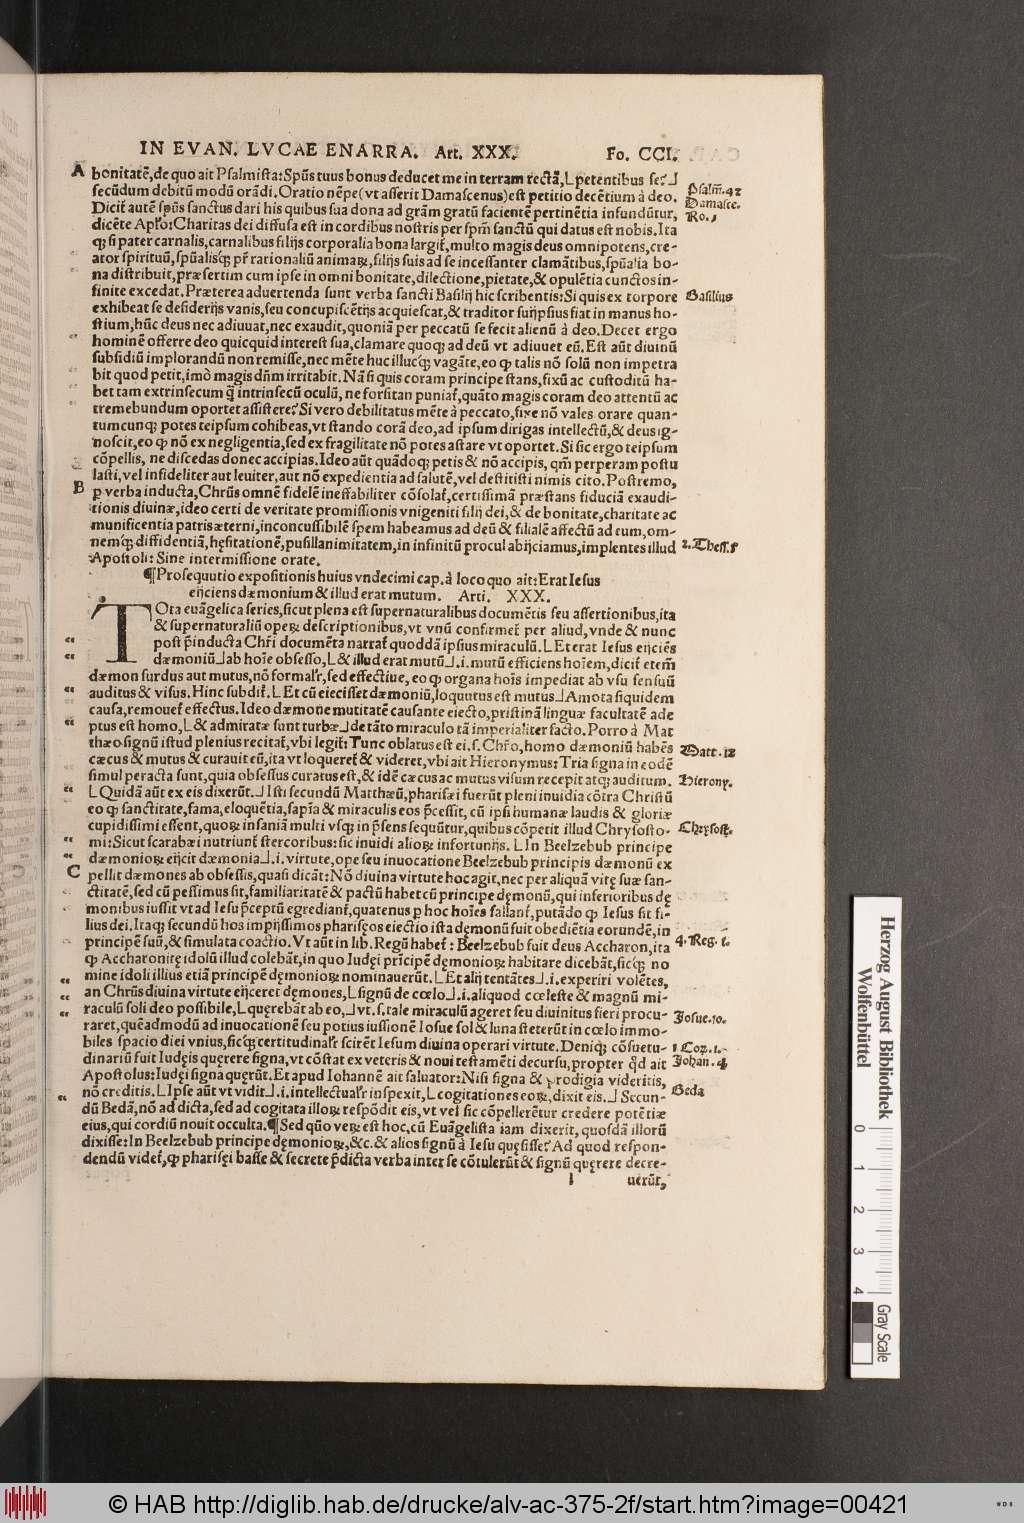 IN EVAN. LVCAE ENARRA. Art. XXX. Fo. CCI.
A bonitatē, de quo ait Psalmista: Spūs tuus bonus deducet me in terram rectā, L petentibus se? ⅃
secūdum debitū modū orādi. Oratio nēpe (vt asserit Damascenus) est petitio decētium à deo. Psalm. 42 Damasce.
Dicit autē spūs sanctus dari his quibus sua dona ad grām gratū facientē pertinētia infundūtur, Ro. 5
dicēte Apło: Charitas dei diffusa est in cordibus nostris per spm̄ sanctū qui datus est nobis. Ita
qȝ si pater carnalis, carnalibus filijs corporalia bona largit, multo magis deus omnipotens, cre-
ator spirituū, spūalisqȝ pr̄ rationaliū animaꝝ, filijs suis ad se incessanter clamātibus, spūalia bo-
na distribuit, præsertim cum ipse in omni bonitate, dilectione, pietate, & opulētia cunctos in-
finite excedat. Præterea aduertenda sunt verba sancti Basilij hic scribentis: Si quis ex torpore Basilius
exhibeat se desiderijs vanis, seu concupiscētijs acquiescat, & traditor sui ipsius fiat in manus ho-
stium, hūc deus nec adiuuat, nec exaudit, quoniā per peccatū se fecit alienū à deo. Decet ergo
hominē offerre deo quicquid interest sua, clamare quoqȝ ad deū vt adiuuet eū. Est aūt diuinū
subsidiū implorandū non remisse, nec mēte huc illucqȝ vagāte, eo ꝙ talis nō solū non impetra
bit quod petit, imò magis dn̄m irritabit. Nā si quis coram principe stans, fixū ac custoditū ha-
bet tam extrinsecum q̄ intrinsecū oculū, ne forsitan puniat, quāto magis coram deo attentū ac
tremebundum oportet assistere? Si vero debilitatus mēte à peccato, fixe nō vales orare quan-
tumcunqȝ potes teipsum cohibeas, vt stando corā deo, ad ipsum dirigas intellectū, & deus ig-
noscit, eo ꝙ nō ex negligentia, sed ex fragilitate nō potes astare vt oportet. Si sic ergo teipsum
cōpellis, ne discedas donec accipias. Ideo aūt quādoqȝ petis & nō accipis, qm̄ perperam postu
lasti, vel infideliter aut leuiter, aut nō expedientia ad salutē, vel destitisti nimis cito. Postremo,
B ꝑ verba inducta, Chrūs omnē fidelē ineffabiliter cōsolat, certissimā præstans fiduciā exaudi-
tionis diuinæ, ideo certi de veritate promissionis vnigeniti filij dei, & de bonitate, charitate ac
munificentia patris æterni, inconcussibilē spem habeamus ad deū & filialē affectū ad eum, om-
nemqȝ diffidentiā, hęsitationē, pusillanimitatem, in infinitū procul abijciamus, implentes illud 2. Thess. 5
Apostoli: Sine intermissione orate.
¶ Prosequutio expositionis huius vndecimi cap. à loco quo ait: Erat Iesus
eijciens dæmonium & illud erat mutum. Arti. XXX.
TOta euāgelica series, sicut plena est supernaturalibus documētis seu assertionibus, ita
& supernaturaliū opeꝝ descriptionibus, vt vnū confirmet per aliud, vnde & nunc
post p̄inducta Chr̄i documēta narrat quoddā ipsius miraculū. L Et erat Iesus eijciēs
dæmoniū ⅃ ab hoīe obsesso, L & illud erat mutū ⅃ .i. mutū efficiens hoīem, dicit etem̄
dæmon surdus aut mutus, nō formalr̄, sed effectiue, eo ꝙ organa hoīs impediat ab vsu sensuū
auditus & visus. Hinc subdit. L Et cū eiecisset dæmoniū, loquutus est mutus ⅃ Amota siquidem
causa, remouet effectus. Ideo dæmone mutitatē causante eiecto, pristinā linguæ facultatē ade
ptus est homo, L & admiratæ sunt turbæ ⅃ de tāto miraculo tā imperialiter facto. Porro à Mat
thæo signū istud plenius recitat, vbi legit: Tunc oblatus est ei .s. Chr̄o, homo dæmoniū habēs Matt. 12
cæcus & mutus & curauit eū, ita vt loqueret & videret, vbi ait Hieronymus: Tria signa in eodē
simul peracta sunt, quia obsessus curatus est, & idē cæcus ac mutus visum recepit atqȝ auditum. Hierony.
L Quidā aūt ex eis dixerūt. ⅃ Isti secundū Matthæū, pharisæi fuerūt pleni inuidia cōtra Christū
eo ꝙ sanctitate, fama, eloquētia, sapīa & miraculis eos p̄cessit, cū ipsi humanæ laudis & gloriæ
cupidissimi essent, quoꝝ insaniā multi vsqȝ in p̄sens sequūtur, quibus cōpetit illud Chrysosto- Chrysost.
mi: Sicut scarabæi nutriunt stercoribus: sic inuidi alioꝝ infortunijs. L In Beelzebub principe
dæmonioꝝ eijcit dæmonia ⅃ .i. virtute, ope seu inuocatione Beelzebub principis dæmonū ex
C pellit dæmones ab obsessis, quasi dicāt: Nō diuina virtute hoc agit, nec per aliquā vitę suæ san-
ctitatē, sed cū pessimus sit, familiaritatē & pactū habet cū principe dęmonū, qui inferioribus dę
monibus iussit vt ad Iesu p̄ceptū egrediant, quatenus ꝑ hoc hoīes fallant, putādo ꝙ Iesus sit fi-
lius dei. Itaqȝ secundū hos impijssimos pharisęos eiectio ista dęmonū fuit obediētia eorundē, in
principē suū, & simulata coactio. Vt aūt in lib. Regū habet: Beelzebub fuit deus Accharon, ita 4. Reg. 1.
ꝙ Accharonitę idolū illud colebāt, in quo Iudęi prīcipē dęmonioꝝ habitare dicebāt, sicqȝ no
mine idoli illius etiā principē dęmonioꝝ nominauerūt. L Et alij tentātes ⅃ .i. experiri volētes,
an Chrūs diuina virtute eijceret dęmones, L signū de cœlo ⅃ .i. aliquod cœleste & magnū mi-
raculū soli deo possibile, L quęrebāt ab eo, ⅃ vt .s. tale miraculū ageret seu diuinitus fieri procu- Josue. 10.
raret, quēadmodū ad inuocationē seu potius iussionē Iosue sol & luna steterūt in cœlo immo-
biles spacio diei vnius, sicqȝ certitudinalr̄ scirēt Iesum diuina operari virtute. Deniqȝ cōsuetu- 1. Cor. 1.
dinariū fuit Iudęis quęrere signa, vt cōstat ex veteris & noui testamēti decursu, propter qd̄ ait Johan. 4
Apostolus: Iudęi signa quęrūt. Et apud Iohannē ait saluator: Nisi signa & prodigia videritis,
nō creditis. L Ipse aūt vt vidit ⅃ .i. intellectualr̄ inspexit, L cogitationes eoꝝ, dixit eis. ⅃ Secun- Beda
dū Bedā, nō ad dicta, sed ad cogitata illoꝝ respōdit eis, vt vel sic cōpellerētur credere potētiæ
eius, qui cordiū nouit occulta. ¶ Sed qūo veꝝ est hoc, cū Euāgelista iam dixerit, quosdā illorū
dixisse: In Beelzebub principe dęmonioꝝ, &c. & alios signū à Iesu quęsisse? Ad quod respon-
dendū videt, ꝙ pharisęi basse & secrete p̄dicta verba inter se cōtulerūt & signū quęrere decre-
l uerūt,
Herzog August Bibliothek
Wolfenbüttel
0 1 2 3 4 Gray Scale
© HAB http://diglib.hab.de/drucke/alv-ac-375-2f/start.htm?image=00421